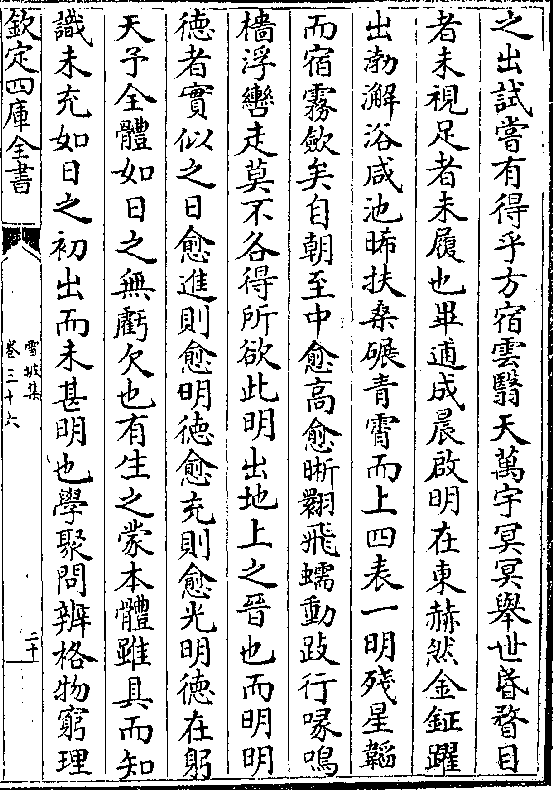 之出試嘗有得乎方宿雲翳天萬宇冥冥舉世昏瞀目
者未視足者未履也畢逋成晨啟明在東赫然金鉦躍
出渤澥浴咸池晞扶桑碾青霄而上四表一明殘星韜
而宿霧斂矣自朝至中愈高愈晣翾飛蠕動跂行喙鳴
檣浮轡走莫不各得所欲此明出地上之晉也而明明
德者實似之日愈進則愈明德愈充則愈光明德在躬
天予全體如日之無虧欠也有生之蒙本體雖具而知
識未充如日之初出而未甚明也學聚問辨格物窮理
欽定四庫全書
雪坡集
卷三十六
二十